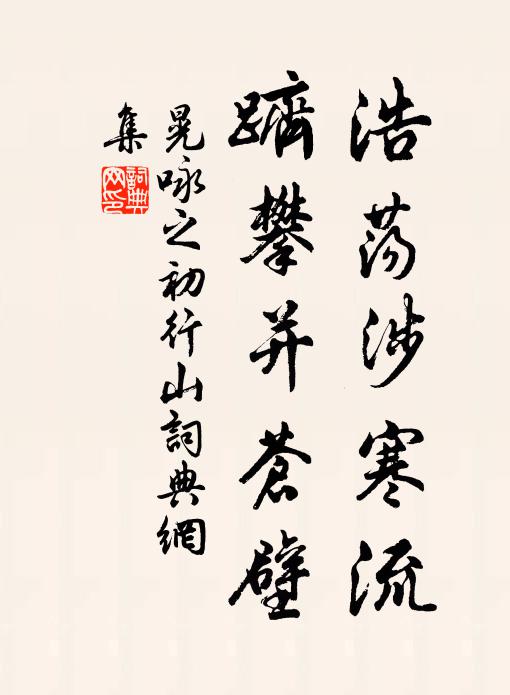 浩荡涉寒流
躋攀并蒼壁
晁咏之初行山詞典網
集
詞典网印